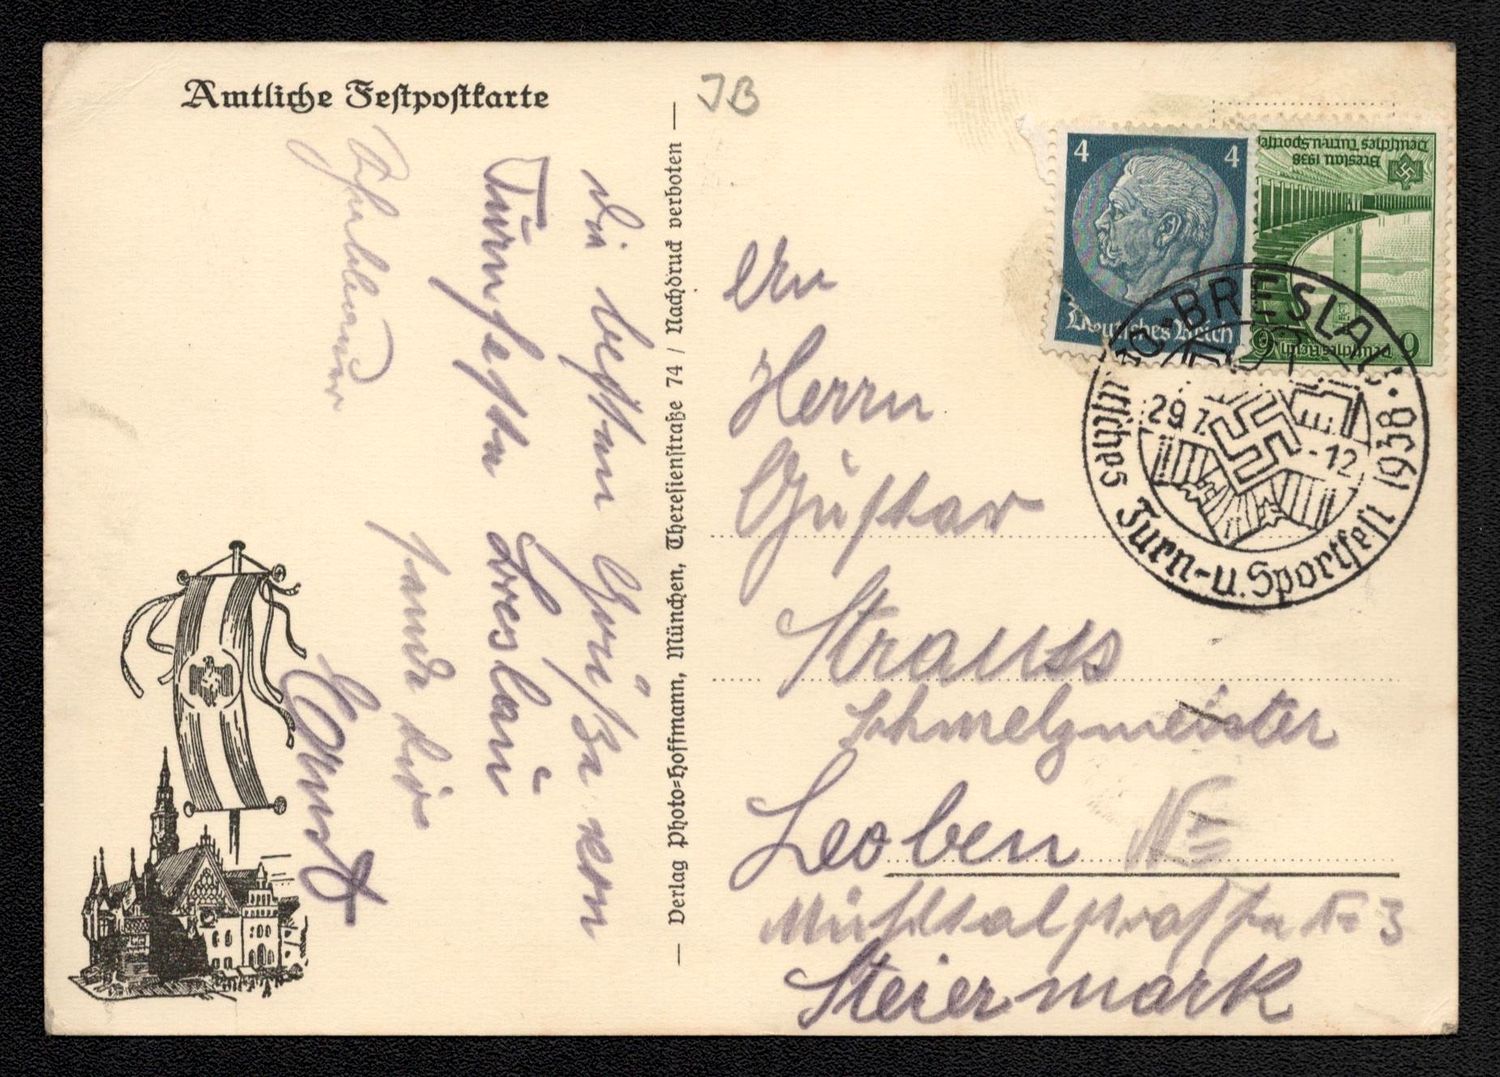 Amtliche Festpostkarte
JB
Die besten Grüße vom
Turnfeste Breslau
sendet dir
Ernst
— Verlag Photo-Hoffmann, München, Theresienstraße 74 / Nachdruck verboten —
4 4
Deutsches Reich
Breslau 1938
Deutsches Turn-u. Sportfest
6 6
Deutsches Reich
BRESLAU
29.7. -12
Deutsches Turn-u. Sportfest 1938
An
Herrn
Gustav
Strauss
Schmelzmeister
Leoben
Mühltalstraße Nr 3
Steiermark